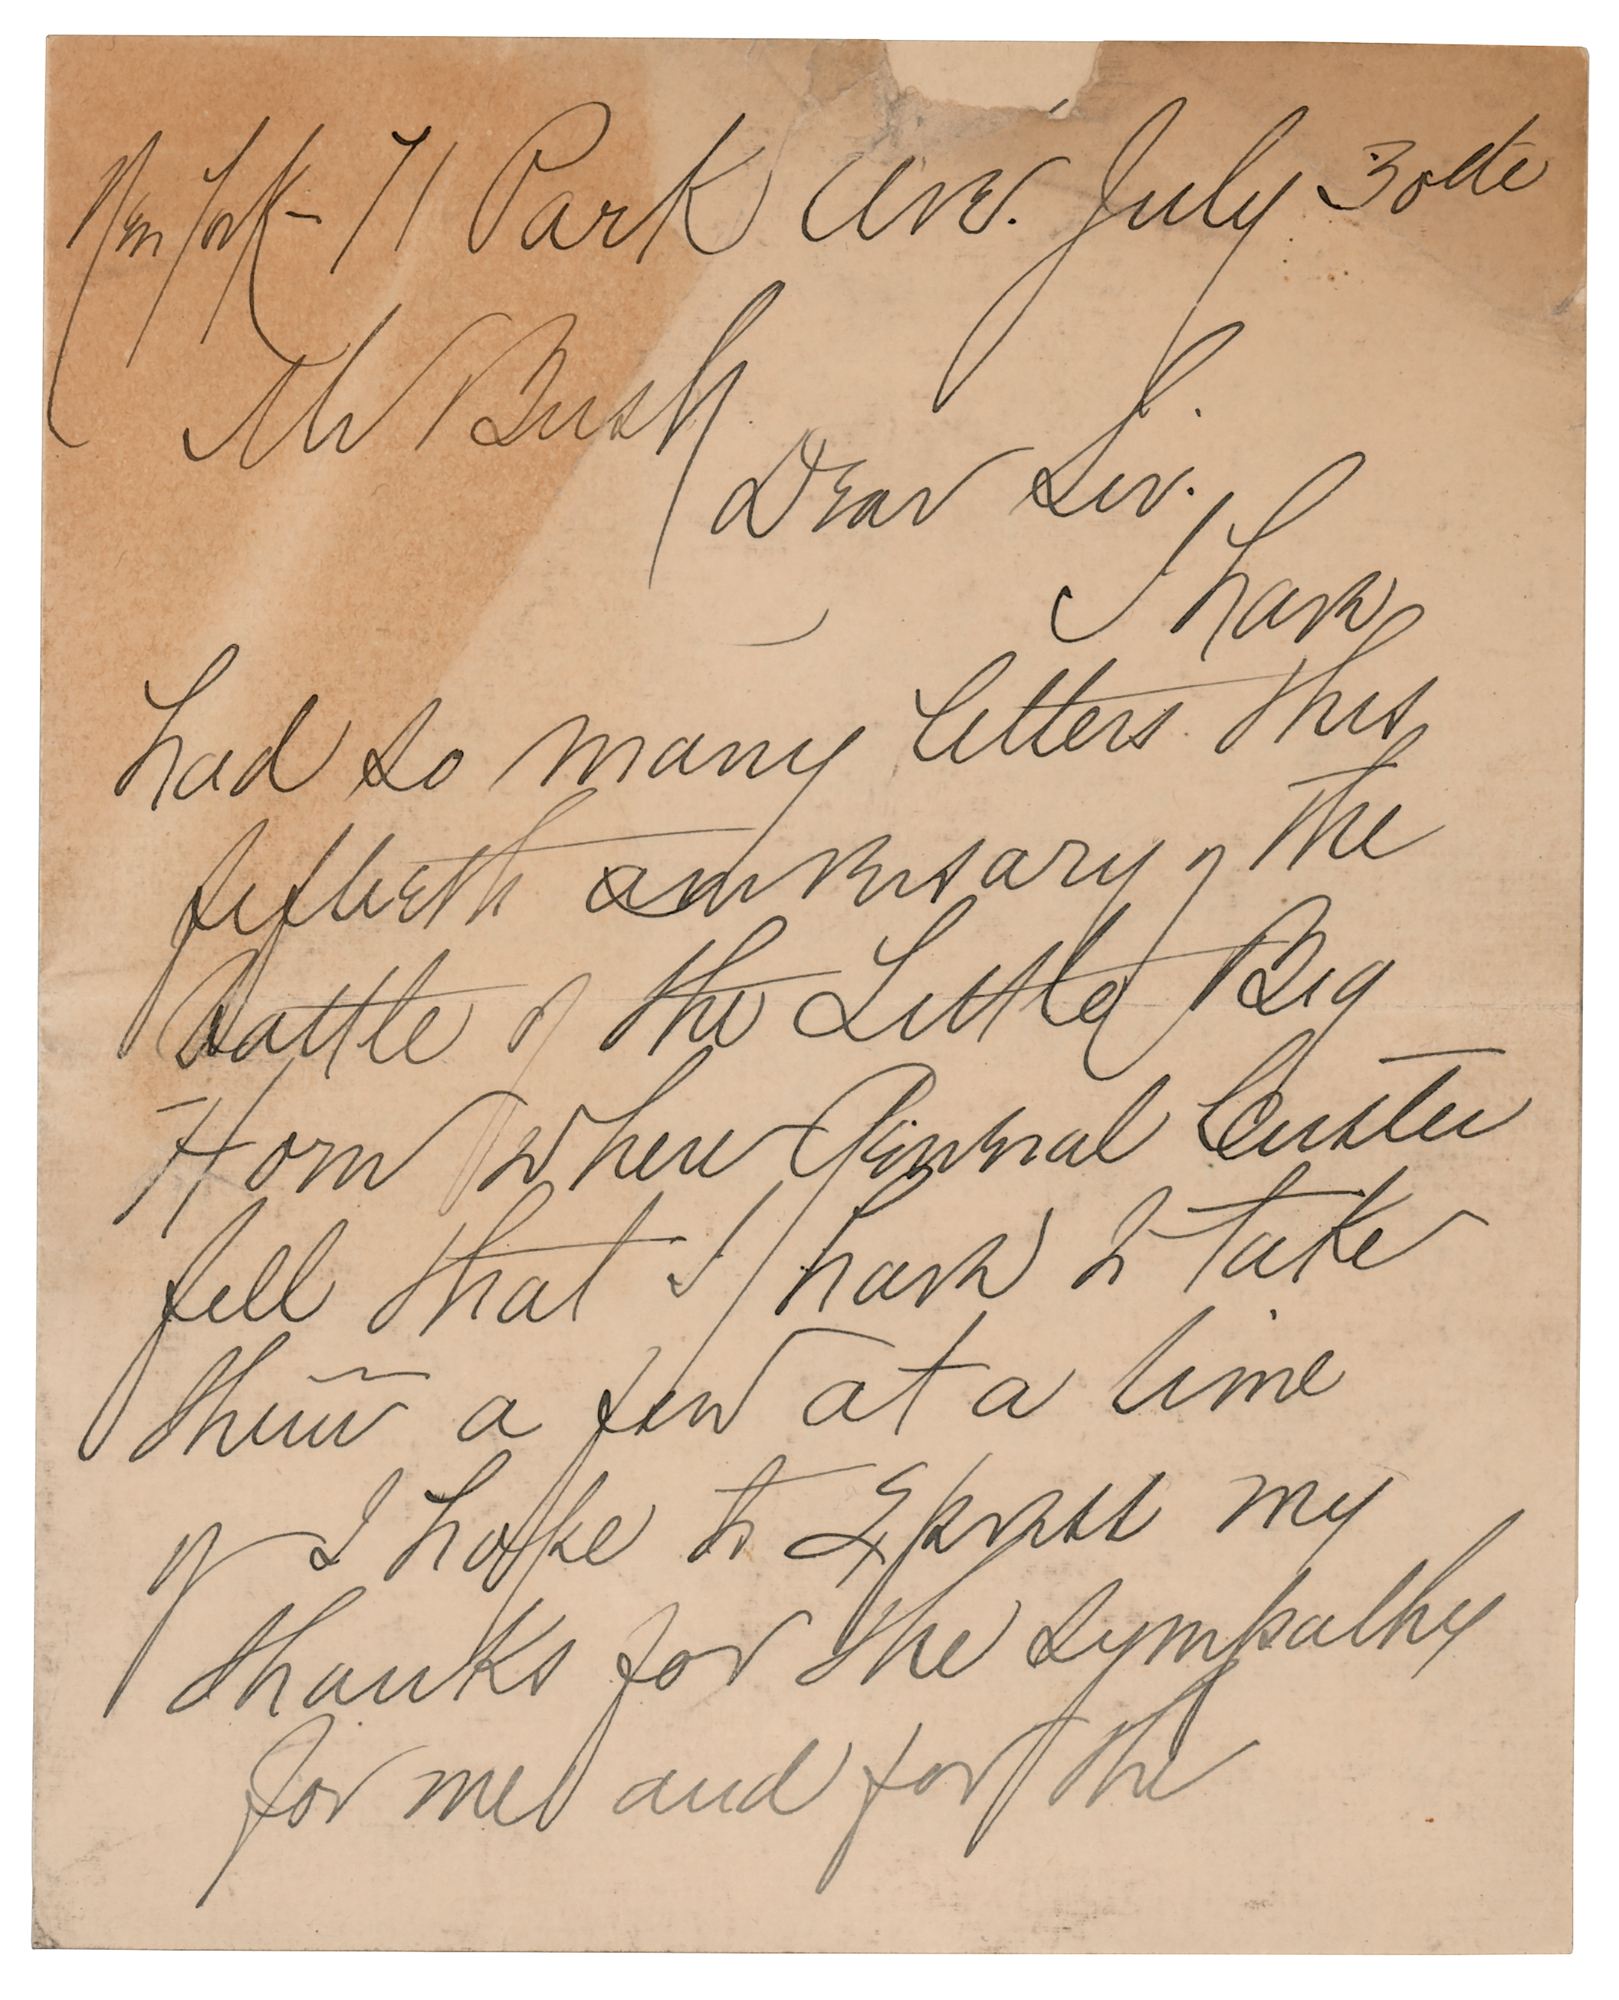 New York - 71 Park Ave. July 30th
Mr Bush
Dear Sir.
I have
had so many letters this
fiftieth anniversary of the
Battle of the Little Big
Horn where General Custer
fell that I have to take
them a few at a time
if I hope to express my
thanks for the sympathy
for me and for the